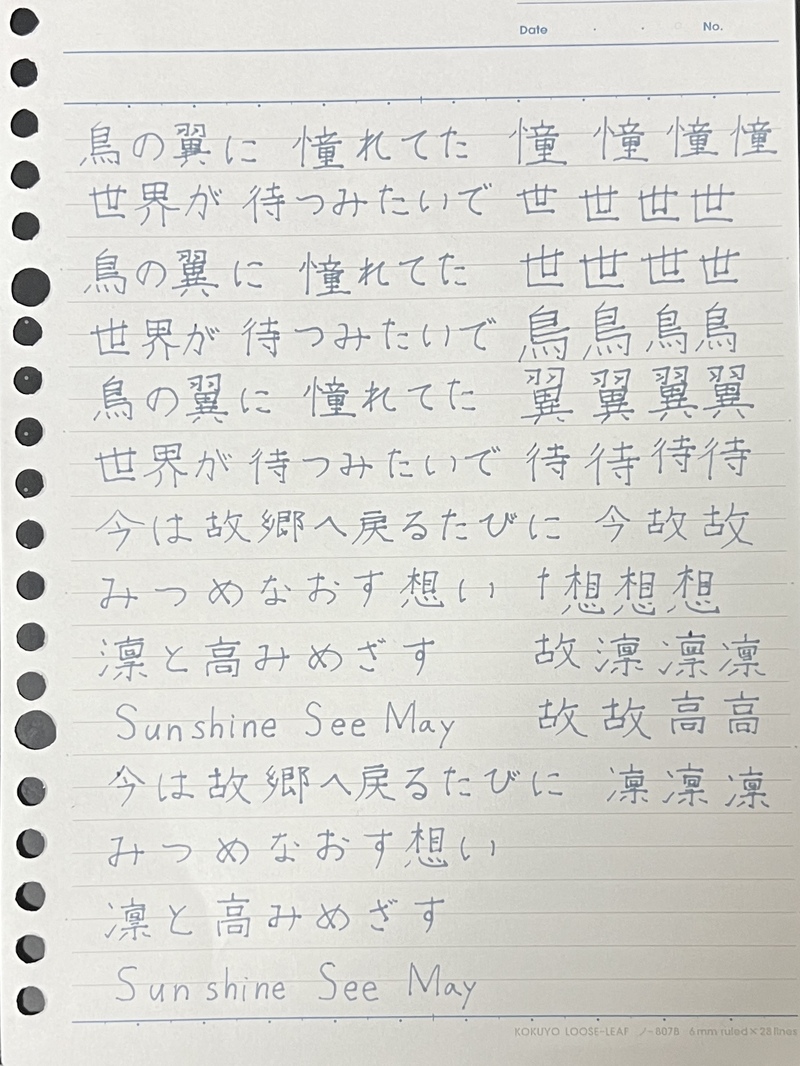 Date . . No.
鳥の翼に 憧れてた 憧 憧 憧 憧
世界が 待つみたいで 世 世 世 世
鳥の翼に 憧れてた 世 世 世 世
世界が 待つみたいで 鳥 鳥 鳥 鳥
鳥の翼に 憧れてた 翼 翼 翼 翼
世界が 待つみたいで 待 待 待 待
今は故郷へ戻るたびに 今 故 故
みつめなおす想い 想 想 想
凜と高みめざす 故 凜 凜 凜
Sunshine See May 故 故 高 高
今は故郷へ戻るたびに 凜 凜 凜
みつめなおす想い
凜と高みめざす
Sunshine See May
KOKUYO LOOSE-LEAF ノ-807B 6mm ruled×28 lines